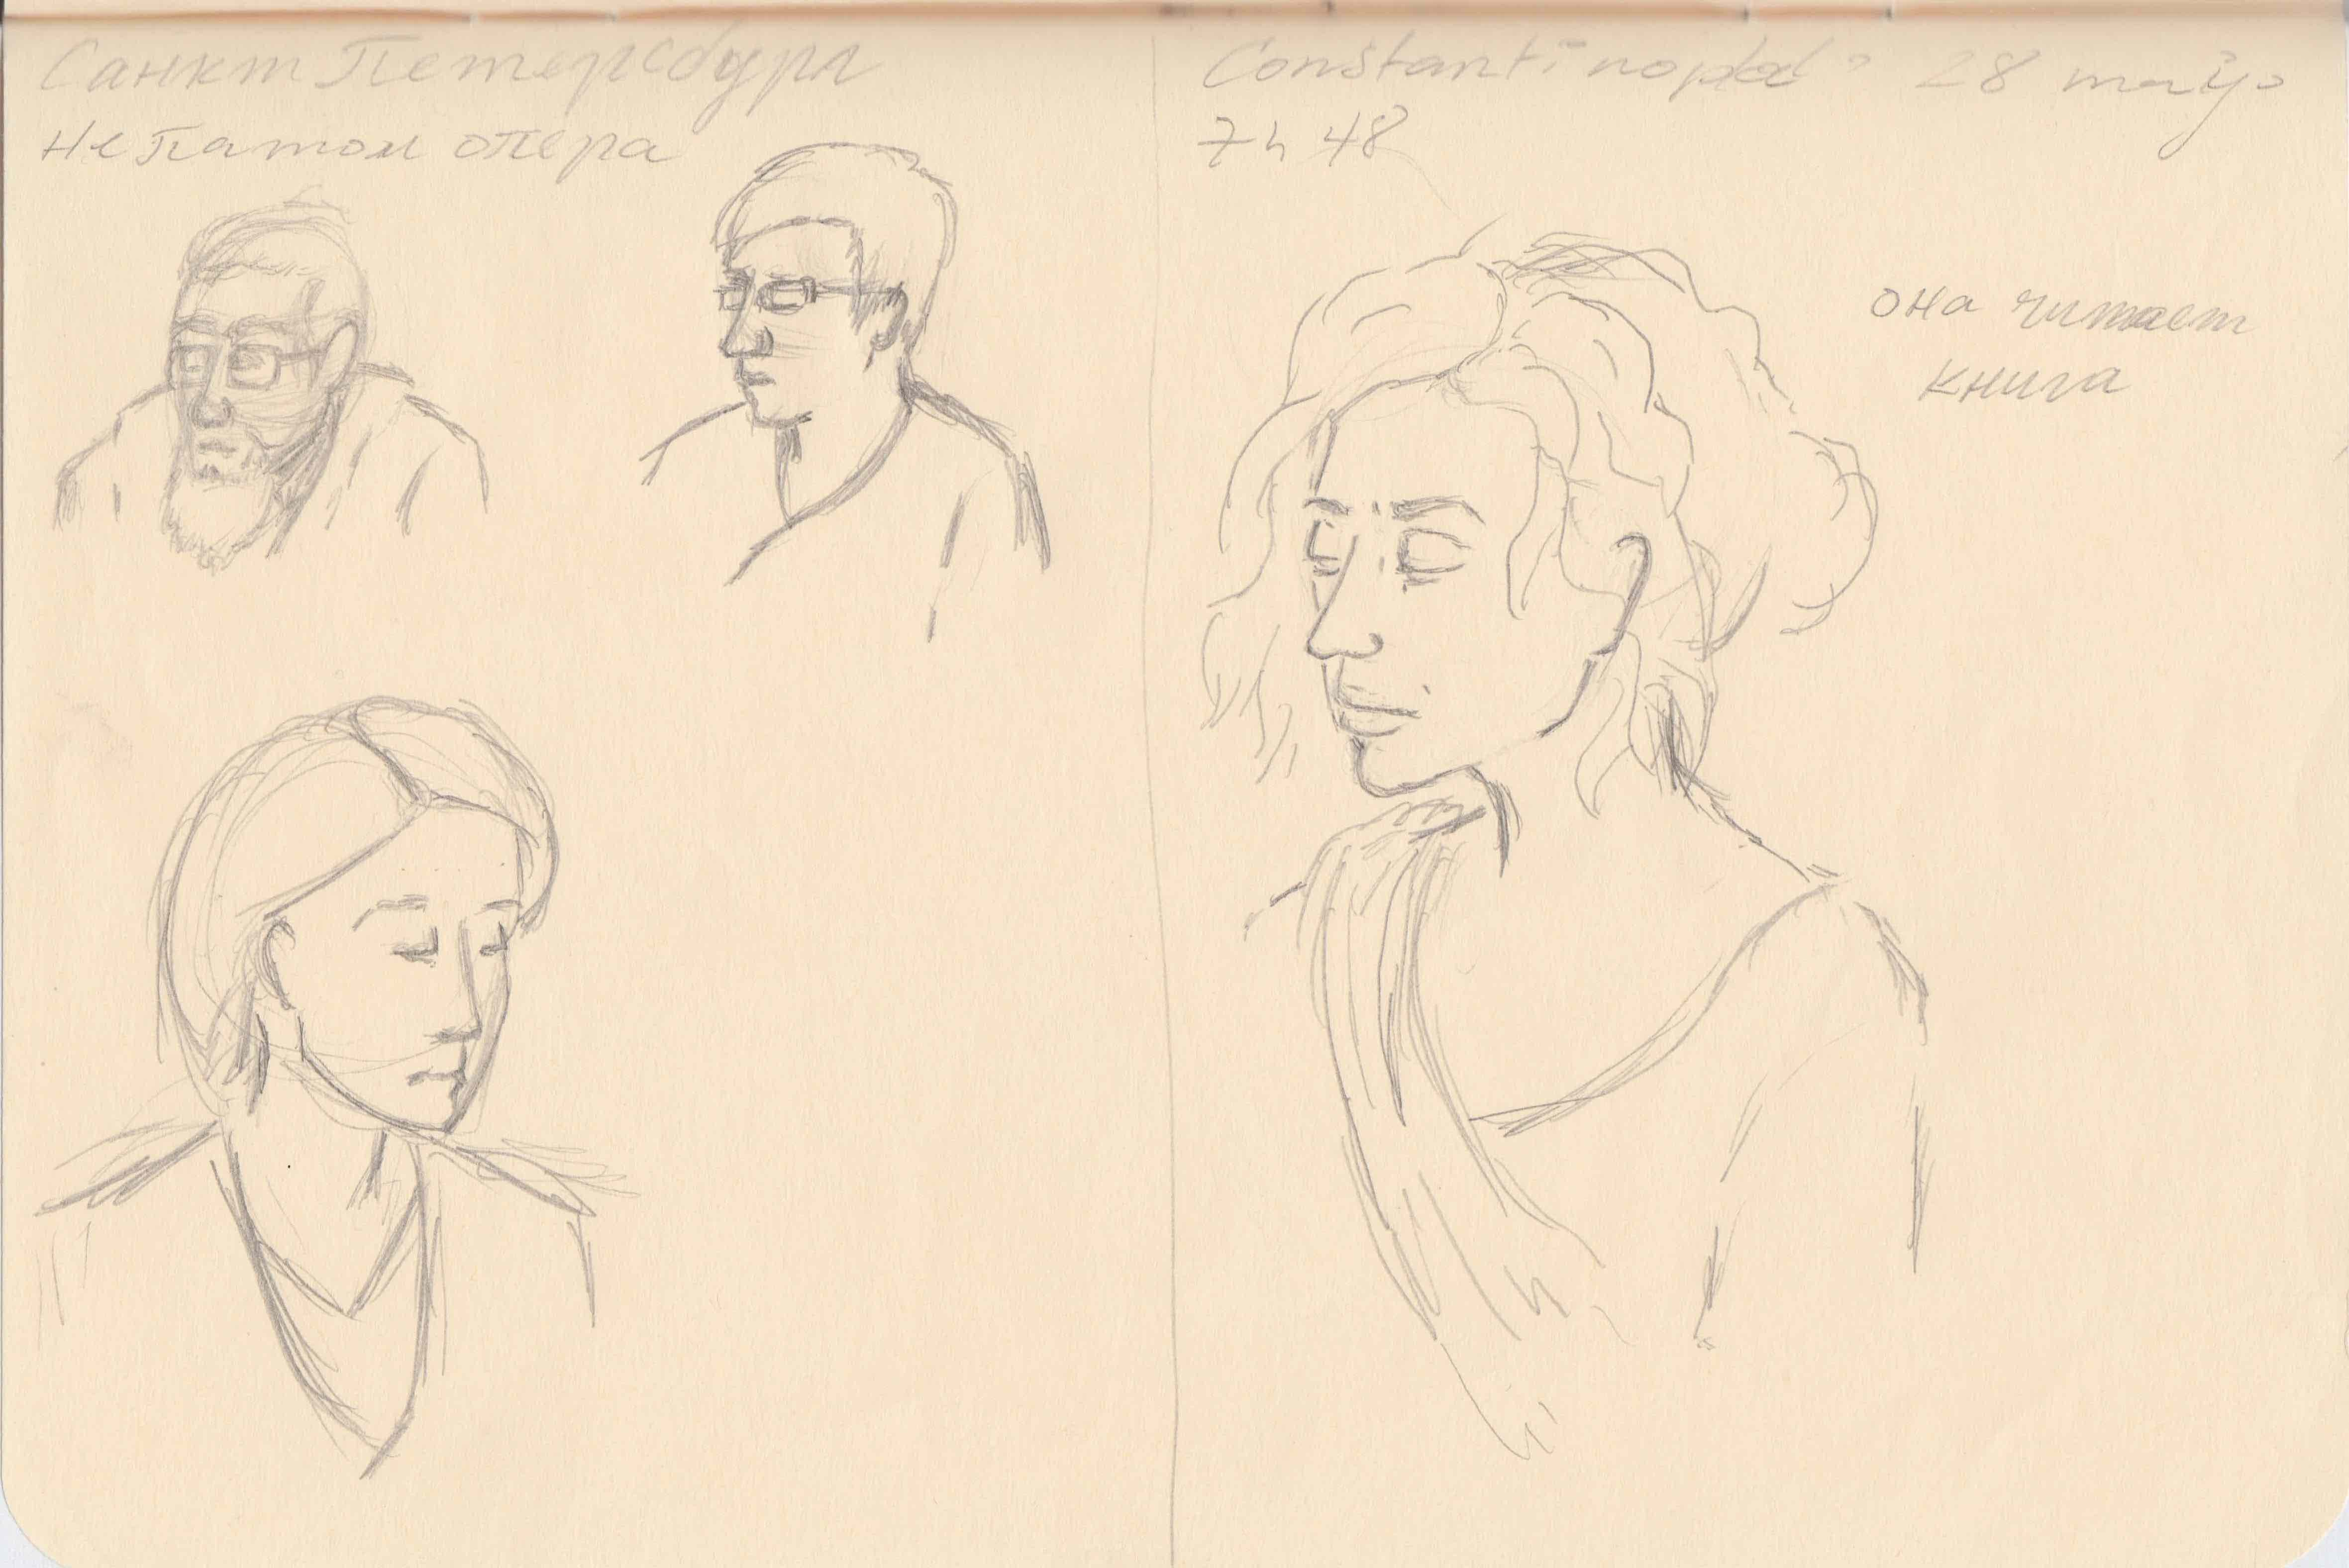 Санкт Петерсбург
не патом опера
Constantinopla 28 mayo
7h 48
она читает
книга